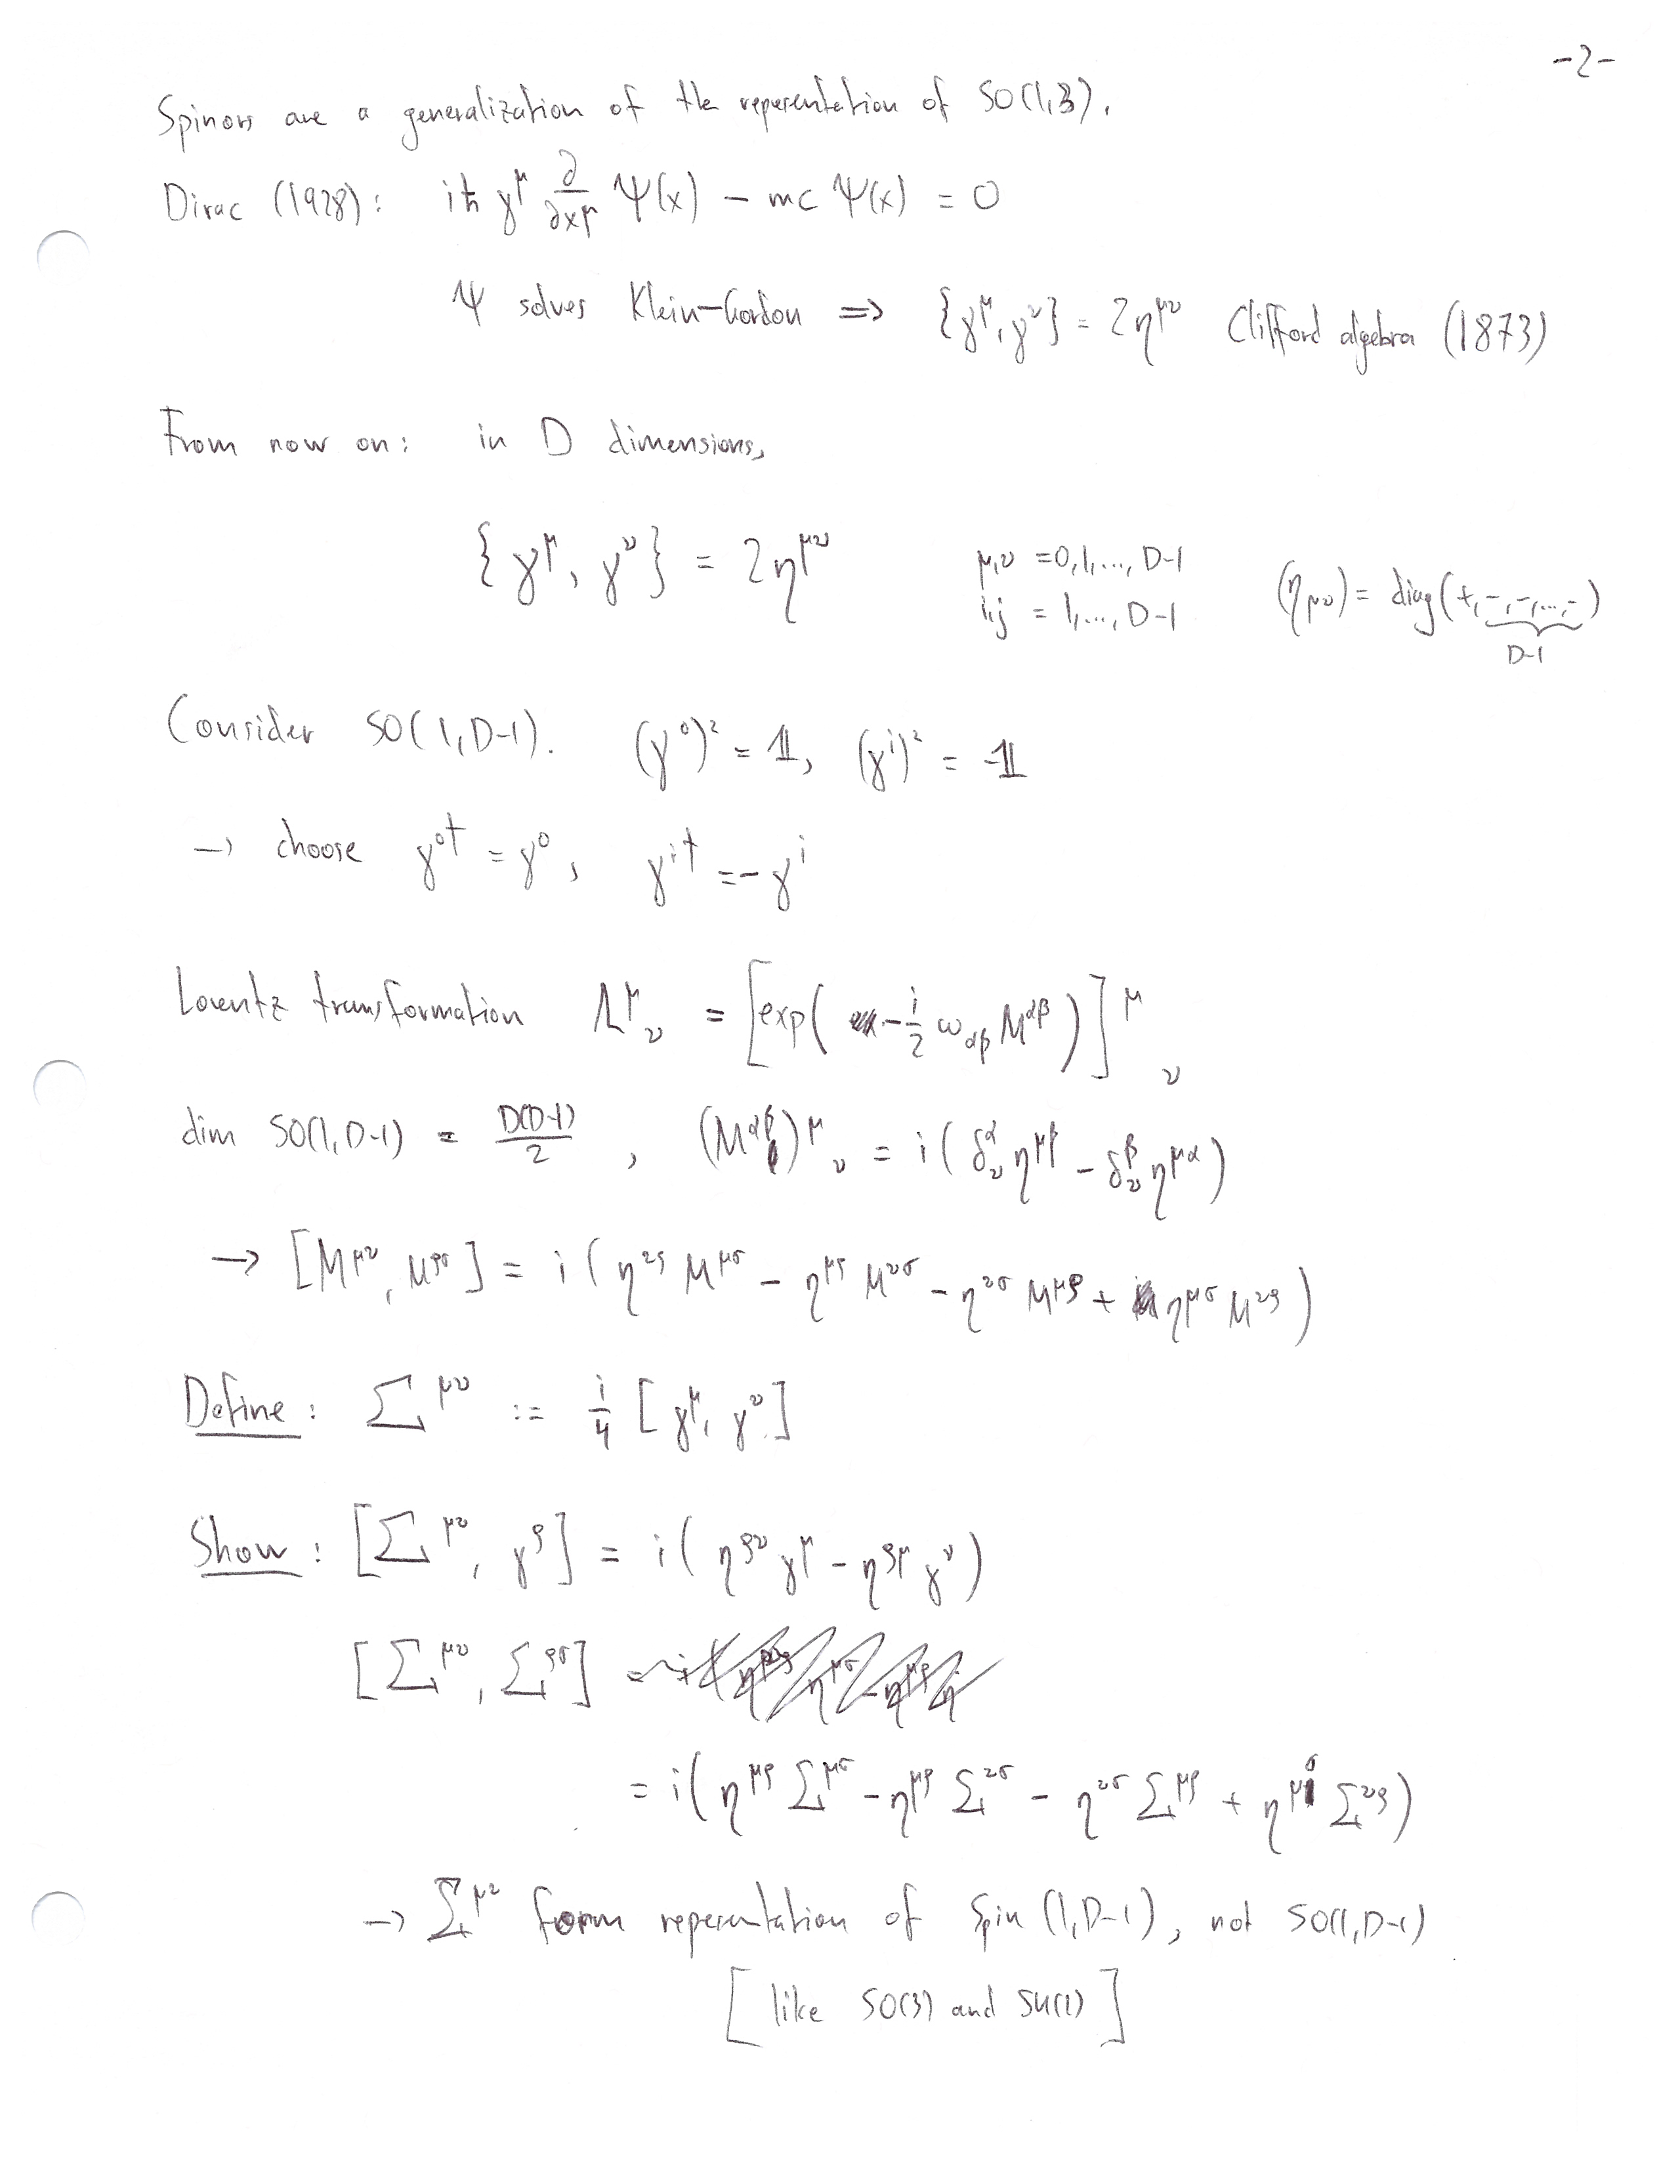 -2-
Spinors are a generalization of the reperentation of SO(1,3).
Dirac (1928): iħ γ^μ ∂/∂x^μ Ψ(x) - mc Ψ(x) = 0
Ψ solves Klein-Gordon => {γ^μ, γ^ν} = 2η^{μν} Clifford algebra (1873)
From now on: in D dimensions,
{γ^μ, γ^ν} = 2η^{μν} μ,ν = 0,1,..., D-1 (η_{μν}) = diag(+,-,-,...,-)
i,j = 1,..., D-1 D-1
Consider SO(1,D-1). (γ^0)^2 = 𝟙, (γ^i)^2 = -𝟙
→ choose γ^{0†} = γ^0, γ^{i†} = -γ^i
Lorentz transformation Λ^μ_ν = [exp(-i/2 ω_{αβ} M^{αβ})]^μ_ν
dim SO(1,D-1) = D(D-1)/2, (M^{αβ})^μ_ν = i(δ^α_ν η^{μβ} - δ^β_ν η^{μα})
→ [M^{μν}, M^{ρσ}] = i(η^{νρ} M^{μσ} - η^{μρ} M^{νσ} - η^{νσ} M^{μρ} + η^{μσ} M^{νρ})
Define: Σ^{μν} := i/4 [γ^μ, γ^ν]
Show: [Σ^{μν}, γ^ρ] = i(η^{ρν} γ^μ - η^{ρμ} γ^ν)
[Σ^{μν}, Σ^{ρσ}]
= i(η^{μρ} Σ^{μσ} - η^{μρ} Σ^{νσ} - η^{νσ} Σ^{μρ} + η^{μσ} Σ^{νρ})
→ Σ^{μν} form reperentation of Spin (1,D-1), not SO(1,D-1)
[like SO(3) and SU(2)]